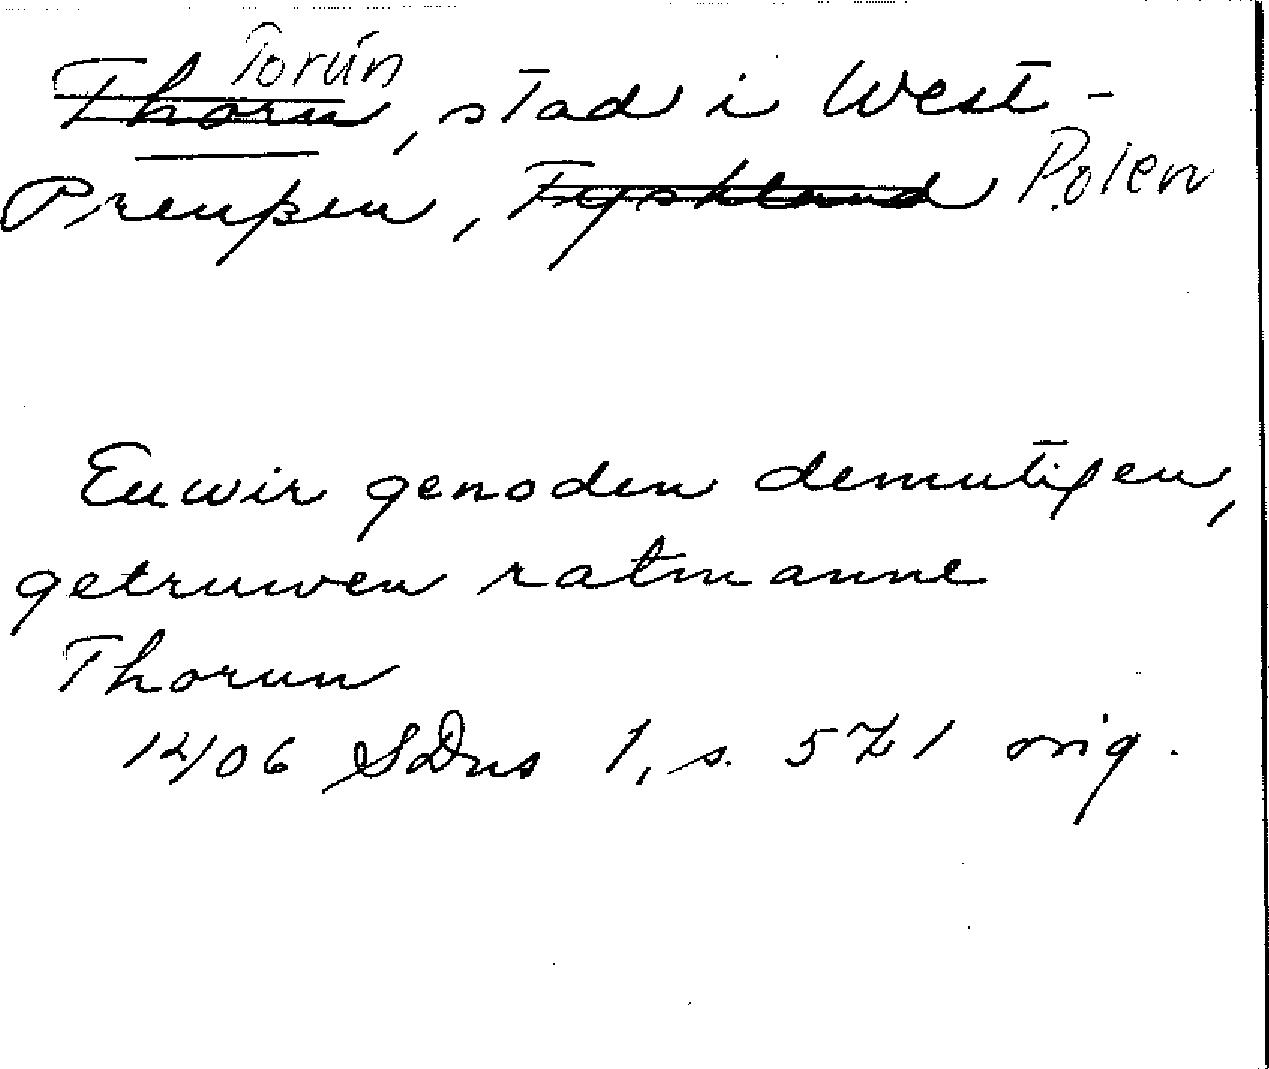 Torún
Thorn, stad i West-
Preußen, Tyskland Polen
Euwir genoden demutigen,
getruwen ratmanne
Thorun
1406 SDns 1, s. 571 orig.